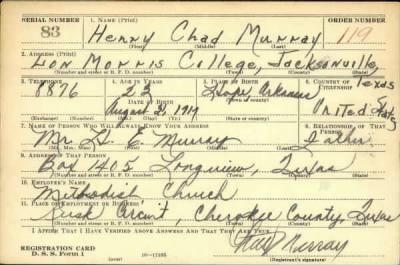 SERIAL NUMBER 1. NAME (Print) ORDER NUMBER
83 Henry Chad Murray 119
(First) (Middle) (Last)
2. ADDRESS (Print)
Lon Morris College, Jacksonville,
(Number and street or R. F. D. number) (Town) (County) (State)
Texas
3. TELEPHONE 4. AGE IN YEARS 5. PLACE OF BIRTH 6. COUNTRY OF CITIZENSHIP
8876 23 Hope, Arkansas
DATE OF BIRTH (Town or county)
August 21, 1917 United States
(Mo.) (Day) (Yr.) (State or country)
7. NAME OF PERSON WHO WILL ALWAYS KNOW YOUR ADDRESS 8. RELATIONSHIP OF THAT PERSON
Mr. Murray Father
(Mr., Mrs., Miss) (First) (Middle) (Last)
9. ADDRESS OF THAT PERSON
Box 1405 Longview, Texas
(Number and street or R. F. D. number) (Town) (County) (State)
10. EMPLOYER'S NAME
Methodist Church
11. PLACE OF EMPLOYMENT OR BUSINESS
Rusk Circuit, Cherokee County, Texas
(Number and street or R. F. D. number) (Town) (County) (State)
I AFFIRM THAT I HAVE VERIFIED ABOVE ANSWERS AND THAT THEY ARE TRUE.
Chad Murray
REGISTRATION CARD
D. S. S. Form 1 (Registrant's signature)
(over)